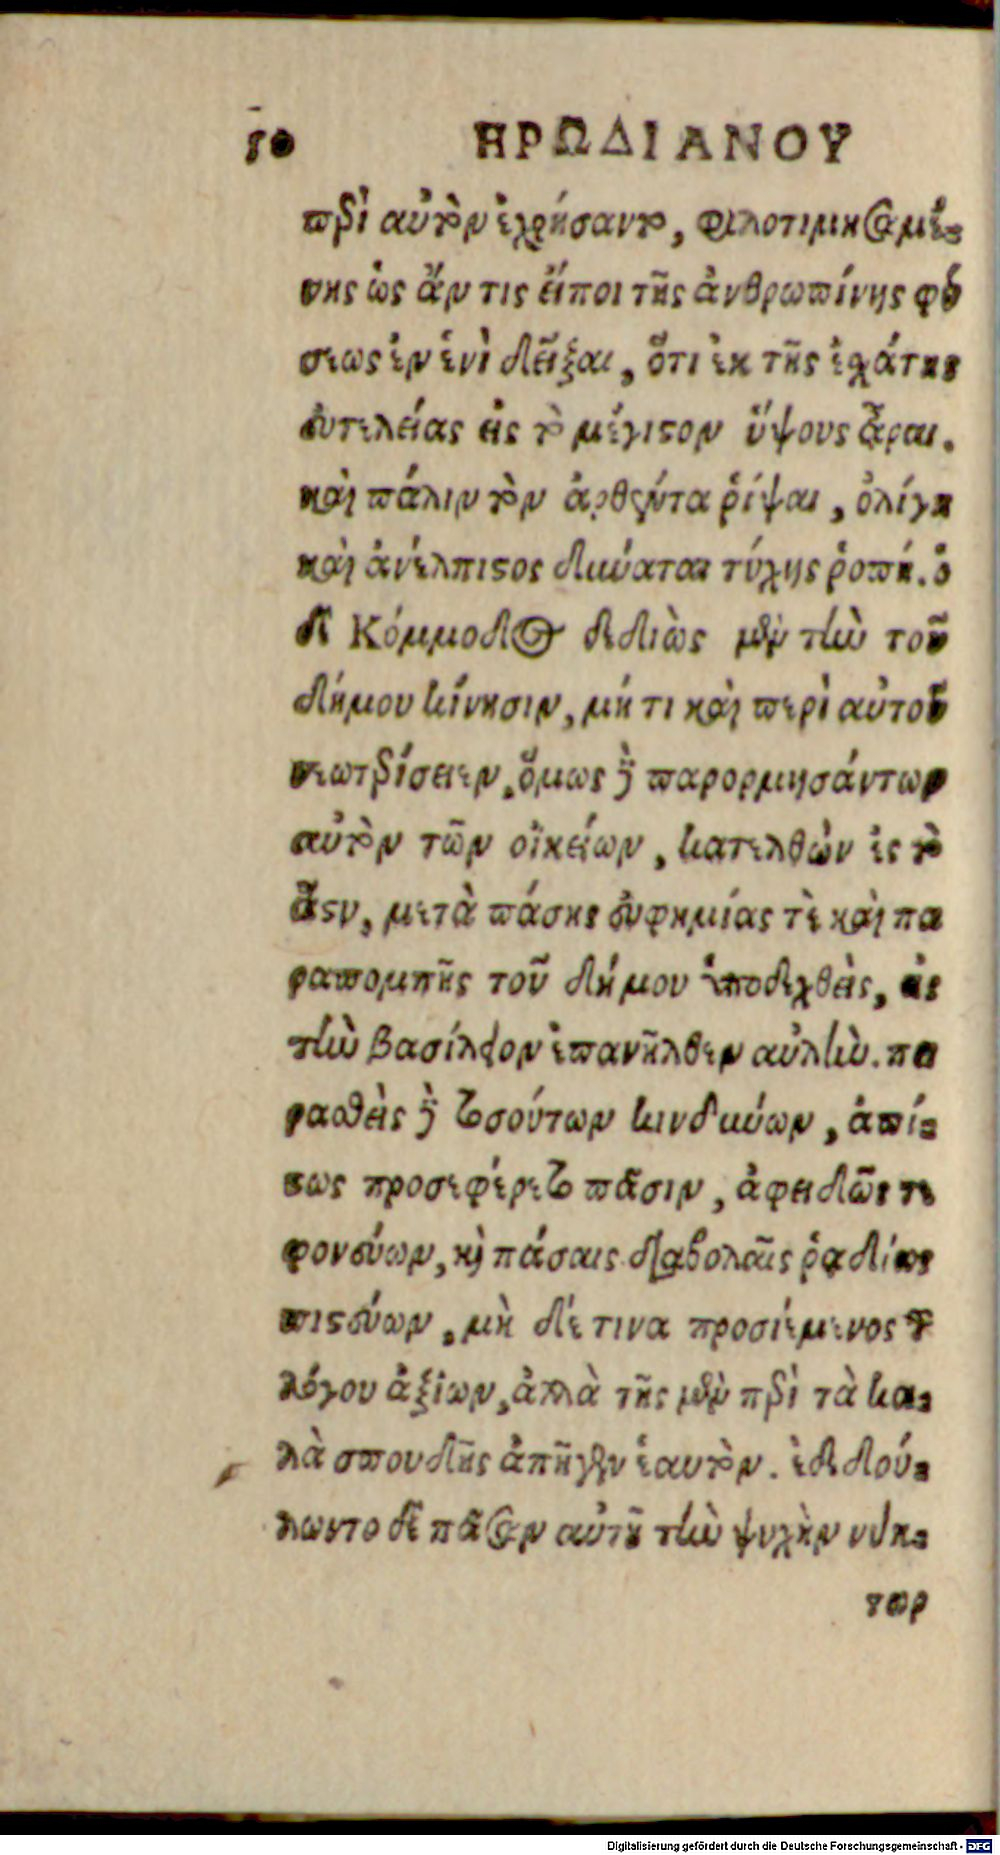 50 ΗΡΩΔΙΑΝΟΥ
περὶ αὐτὸν ἐχρήσαντο, φιλοτιμησαμέ-
νης ὡς ἄν τις εἴποι τῆς ἀνθρωπίνης φύ
σεως ἐν ἑνὶ δεῖξαι, ὅτι ἐκ τῆς ἐσχάτης
εὐτελείας εἰς τὸ μέγιστον ὕψους ἆραι.
καὶ πάλιν τὸν ἀρθέντα ῥίψαι, ὀλίγη
καὶ ἀνέλπιστος δύναται τύχης ῥοπή. ὁ
δὲ Κόμμοδος δεδιὼς μὲν τὴν τοῦ
δήμου κίνησιν, μή τι καὶ περὶ αὐτοῦ
νεωτερίσειεν, ὅμως δὲ παρορμησάντων
αὐτὸν τῶν οἰκείων, κατελθὼν ἐς τὸ
ἄστυ, μετὰ πάσης εὐφημίας τὲ καὶ πα
ραπομπῆς τοῦ δήμου ὑποδεχθεὶς, εἰς
τὴν βασίλειον ἐπανῆλθεν αὐλὴν. πει
ραθεὶς δὲ τοσούτων κινδύνων, ἀπί-
στως προσεφέρετο πᾶσιν, ἀφειδῶς τε
φονεύων, καὶ πάσαις διαβολαῖς ῥαδίως
πιστεύων, μὴ δέ τινα προσιέμενος τῶν
λόγου ἀξίων, ἀλλὰ τῆς μὲν περὶ τὰ κα-
λὰ σπουδῆς ἀπῆγεν ἑαυτὸν. ἐδεδού-
λωντο δὲ πᾶσαν αὐτοῦ τὴν ψυχὴν νύκ-
τωρ
Digitalisierung gefördert durch die Deutsche Forschungsgemeinschaft - DFG